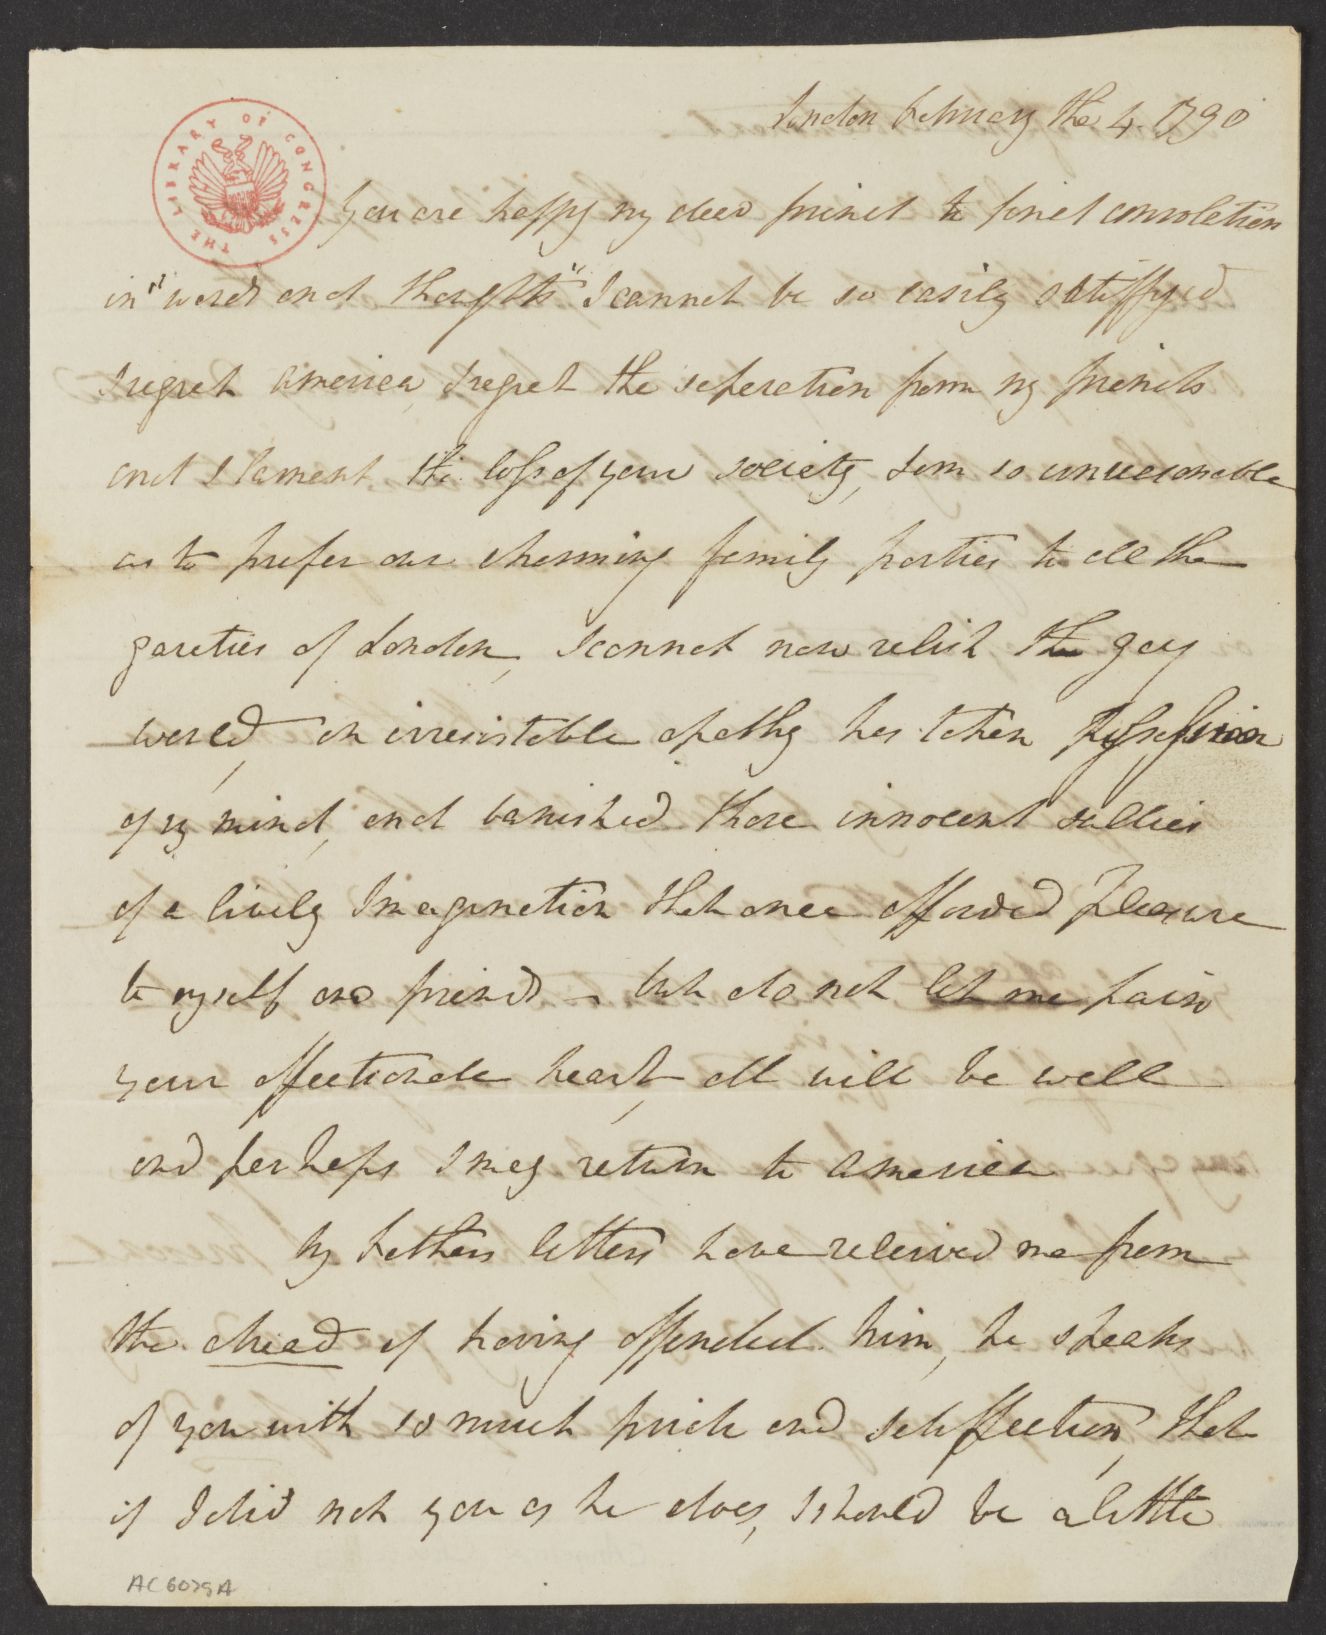 London february the 4. 1790
THE LIBRARY OF CONGRESS
You are happy my dear friend to find consolation
in "words and thoughts" I cannot be so easily satisfyed
I regret America, I regret the seperation from my friends
and I lament the loss of your society, I am so unreasonable
as to prefer our charming family parties to all the
gaieties of London, I cannot now relish the gay
world, an irresistable apathy has taken possession
of my mind, and banished those innocent sallies
of a lively Imagination that once afforded Pleasure
to myself and friends – but do not let me pain
your affectionate heart, all will be well
and perhaps I may return to America
My Fathers letters have releived me from
the dread of having offended him, he speaks
of you with so much pride and satisfaction, that
if I did not you as he does, I should be a little
AC 6075A